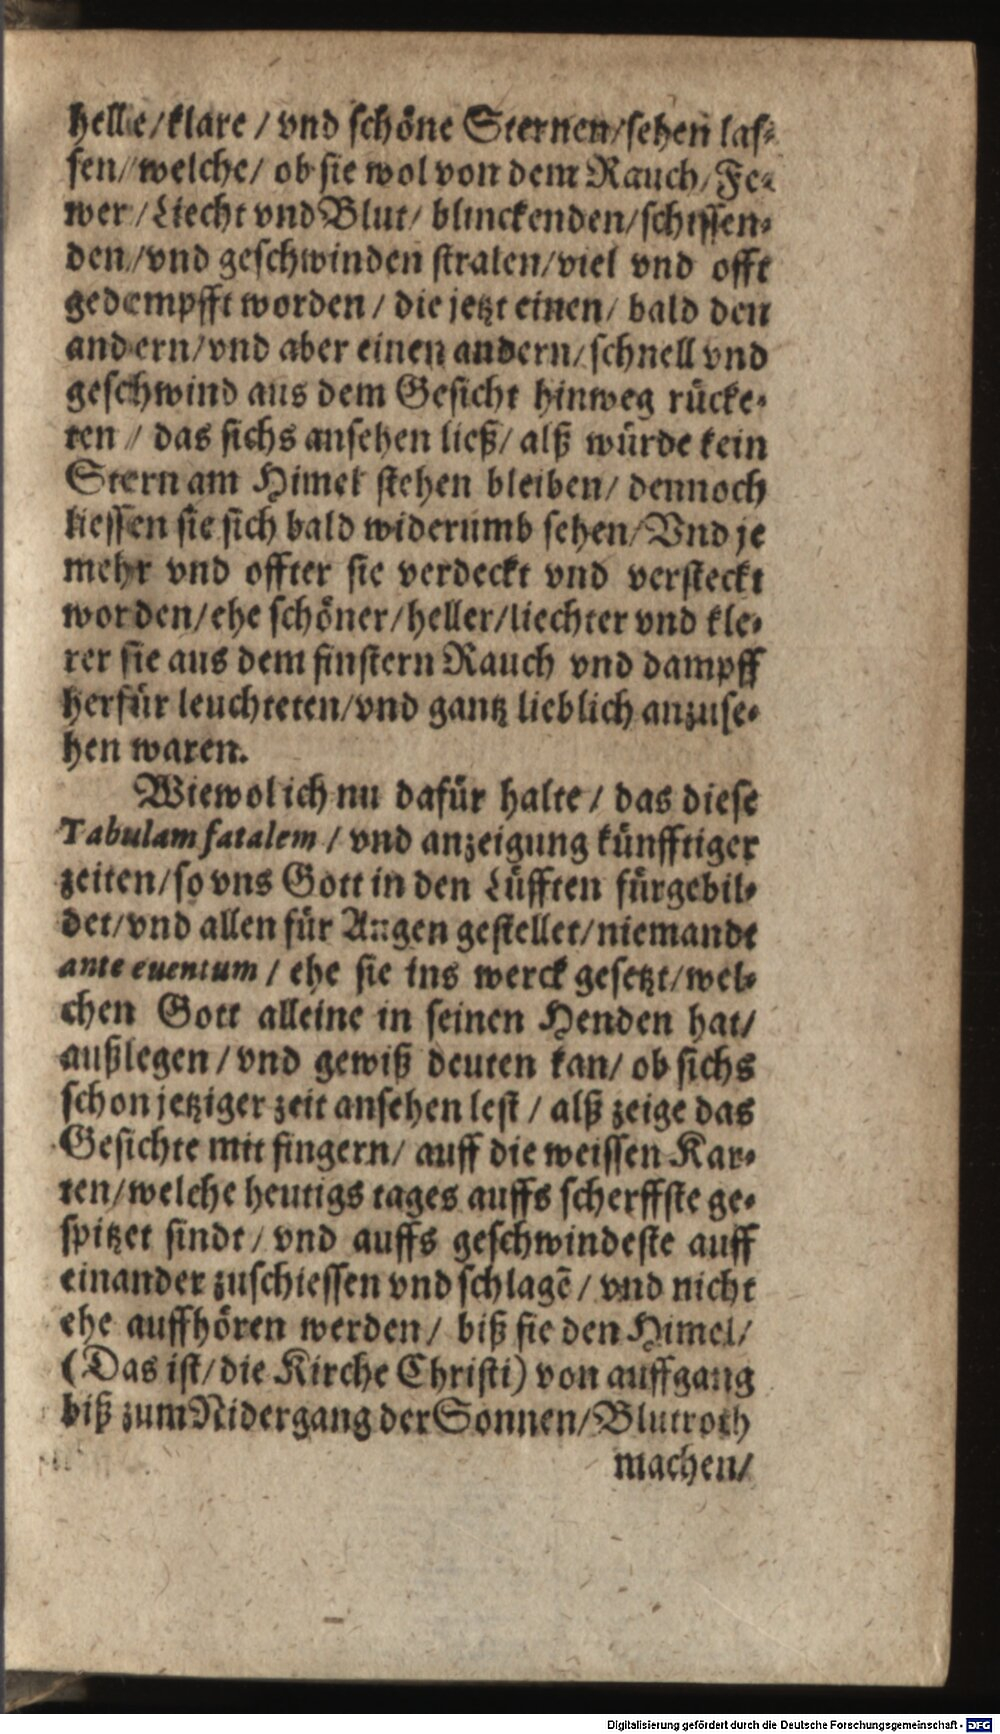 helle/klare / vnd schöne Sternen/sehen las-
sen/welche/ ob sie wol von dem Rauch/Fe-
wer/Liecht vnd Blut/ blinckenden/schissen-
den/vnd geschwinden stralen/viel vnd offt
gedempfft worden / die jetzt einen/ bald den
andern/vnd aber einen andern/schnell vnd
geschwind aus dem Gesicht hinweg rücke-
ten / das sichs ansehen ließ/ alß würde kein
Stern am Himel stehen bleiben/ dennoch
liessen sie sich bald widerumb sehen/Vnd je
mehr vnd offter sie verdeckt vnd versteckt
worden/ehe schöner/heller/liechter vnd kle-
rer sie aus dem finstern Rauch vnd dampff
herfür leuchteten/vnd gantz lieblich anzuse-
hen waren.
Wiewol ich nu dafür halte / das diese
Tabulam fatalem / vnd anzeigung künfftiger
zeiten/so vns Gott in den Lüfften fürgebil-
det/vnd allen für Augen gestellet/niemandt
ante euentum / ehe sie ins werck gesetzt/wel-
chen Gott alleine in seinen Henden hat/
außlegen / vnd gewiß deuten kan/ ob sichs
schon jetziger zeit ansehen lest / alß zeige das
Gesichte mit fingern/ auff die weissen Kar-
ten/welche heutigs tages auffs scherffste ge-
spitzet sindt / vnd auffs geschwindeste auff
einander zuschiessen vnd schlagē / vnd nicht
ehe auffhören werden/ biß sie den Himel/
(Das ist/die Kirche Christi) von auffgang
biß zum Nidergang der Sonnen/Blutroth
machen/
Digitalisierung gefördert durch die Deutsche Forschungsgemeinschaft - DFG